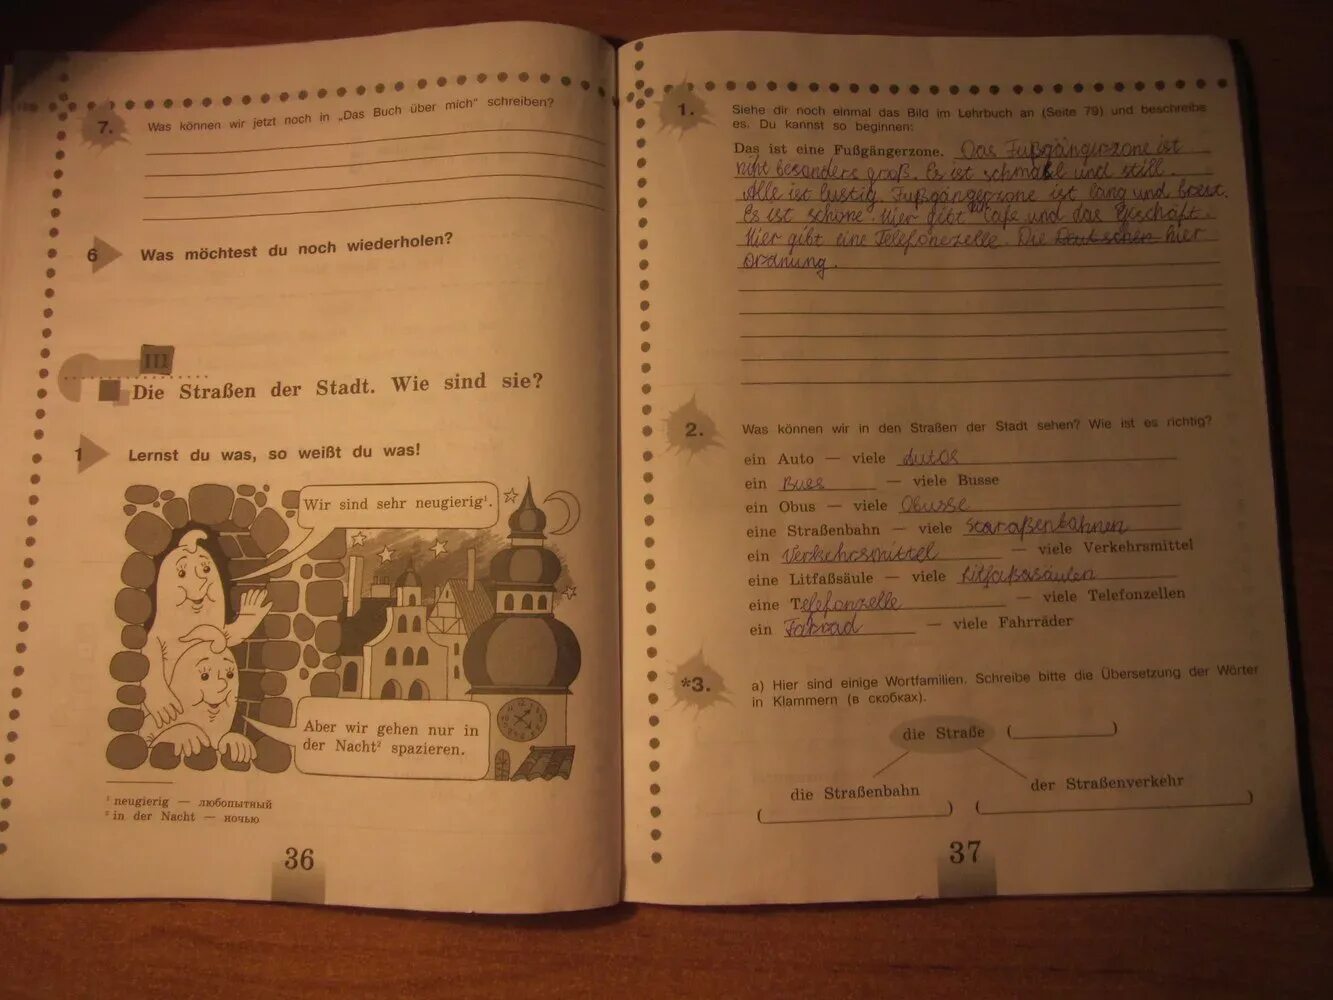 7. Was können wir jetzt noch in „Das Buch über mich“ schreiben?
6 Was möchtest du noch wiederholen?
III
Die Straßen der Stadt. Wie sind sie?
1 Lernst du was, so weißt du was!
Wir sind sehr neugierig¹.
Aber wir gehen nur in
der Nacht² spazieren.
¹ neugierig — любопытный
² in der Nacht — ночью
36
1. Siehe dir noch einmal das Bild im Lehrbuch an (Seite 79) und beschreibe
es. Du kannst so beginnen:
Das ist eine Fußgängerzone. Das Fußgängerzone ist
niht besonders groß. Es ist schmahl und still.
Alle ist lustig. Fußgängerzone ist lang und breit.
Es ist schöne. Hier gibt Cafe und das Geschäft.
Hier gibt eine Telefonezelle. Die Deutschen hier
ordnung.
2. Was können wir in den Straßen der Stadt sehen? Wie ist es richtig?
ein Auto — viele Autos
ein Bues — viele Busse
ein Obus — viele Obusse
eine Straßenbahn — viele Staraßenbahnen
ein Verkehrsmittel — viele Verkehrsmittel
eine Litfaßsäule — viele Litfaßsäulen
eine Telefonzelle — viele Telefonzellen
ein Fahrad — viele Fahrräder
*3. a) Hier sind einige Wortfamilien. Schreibe bitte die Übersetzung der Wörter
in Klammern (в скобках).
die Straße ( )
die Straßenbahn der Straßenverkehr
( ) ( )
37